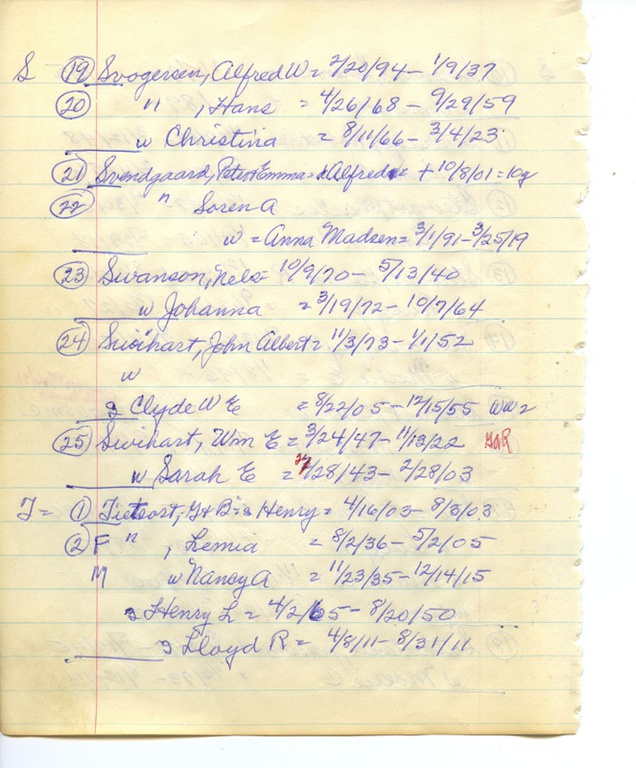 S (19) Svogersen, Alfred W = 2/20/94 - 1/9/37
(20) " , Hans = 4/26/68 - 9/29/59
w Christina = 8/11/66 - 3/4/23
(21) Svendgaard, Peter+Emma = d Alfred + 10/8/01 = 10y
(22) " Soren A
w = Anna Madsen = 3/1/91 - 3/25/19
(23) Swanson, Nels = 10/9/70 - 5/13/40
w Johanna = 3/19/72 - 10/7/64
(24) Swihart, John Albert = 11/3/73 - 1/1/52
w
s Clyde W E = 8/22/05 - 12/15/55 WW2
(25) Swihart, Wm E = 3/24/47 - 11/13/22 GAR
w Sarah E = /28/43 - 2/28/03
T = (1) Tietsort, G+B = s Henry = 4/16/03 - 8/3/03
(2) F " , Lemia = 8/2/36 - 5/2/05
M w Nancy A = 11/23/35 - 12/14/15
s Henry L = 4/2/65 - 8/20/50
s Lloyd R = 4/8/11 - 8/31/11